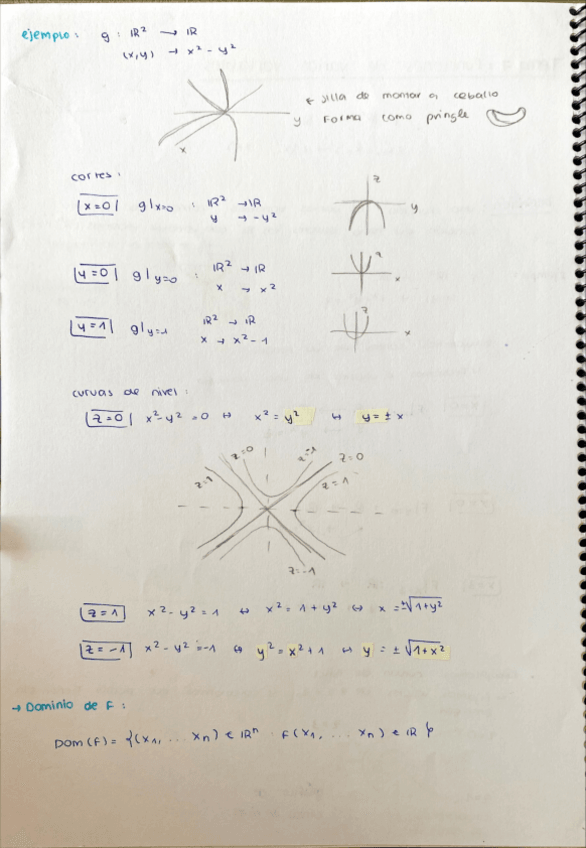 ejemplo: g: ℝ² → ℝ
(x,y) → x² - y²
← silla de montar a caballo
y Forma como pringle
x
cortes:
|x=0| g|x=0 : ℝ² → ℝ
y → -y²
z
y
|y=0| g|y=0 : ℝ² → ℝ
x → x²
z
x
|y=1| g|y=1 ℝ² → ℝ
x → x² - 1
z
x
curvas de nivel:
|z=0| x² - y² = 0 ⇔ x² = y² ⇔ y = ± x
z=0 z=-1 z=0
z=1 z=1
z=-1
|z=1| x² - y² = 1 ⇔ x² = 1 + y² ⇔ x = ±√1+y²
|z=-1| x² - y² = -1 ⇔ y² = x² + 1 ⇔ y = ± √1+x²
→ Dominio de F:
Dom(F) = {(x₁, ... xn) ∈ ℝⁿ : F(x₁, ... xn) ∈ ℝ}